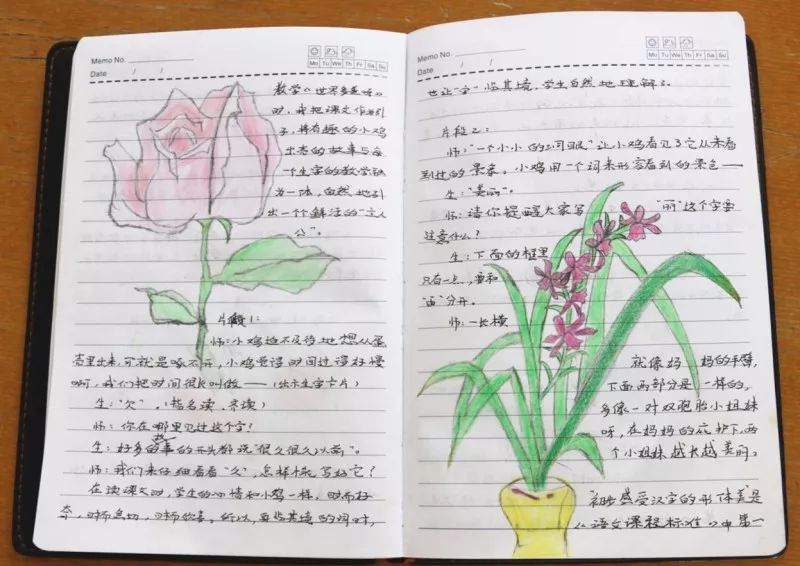 Memo No.
Date / /
Mo Tu We Th Fr Sa Su
教学《世界多美呀》
时，我把课文作为引
子，将有趣的小鸡
出壳的故事与每
一个生字的教学融
为一体，自然地引
出一个个鲜活的“主人
公”。
片段1：
师：小鸡迫不及待地想从蛋
壳里出来，可就是啄不开，小鸡觉得时间过得好慢
啊，我们把时间很长叫做——（出示生字卡片）
生：“久”。（指名读、齐读）
师：你在哪里见过这个字？
生：好多故事的开头都说“很久很久以前”。
师：我们来仔细看看“久”，怎样才能写好它？
在读课文时，学生的心情和小鸡一样，时而好
奇，时而急切，时而欣喜。所以，要临其境的同时，
Memo No.
Date / /
Mo Tu We Th Fr Sa Su
也让“字”临其境，学生自然地理解了。
片段2：
师：“一个小小的洞眼”让小鸡看见了它从来没看
到过的景象。小鸡用一个词来形容看到的景色——
生：“美丽”。
师：请你提醒大家写“丽”这个字要
注意什么？
生：下面的框里
只有一点，要和
“雨”分开。
师：一长横
就像妈妈的手臂，
下面两部分是一样的，
多像一对双胞胎小姐妹
呀，在妈妈的庇护下，两
个小姐妹越长越美丽。
初步感受汉字的形体美是
《语文课程标准》中第一